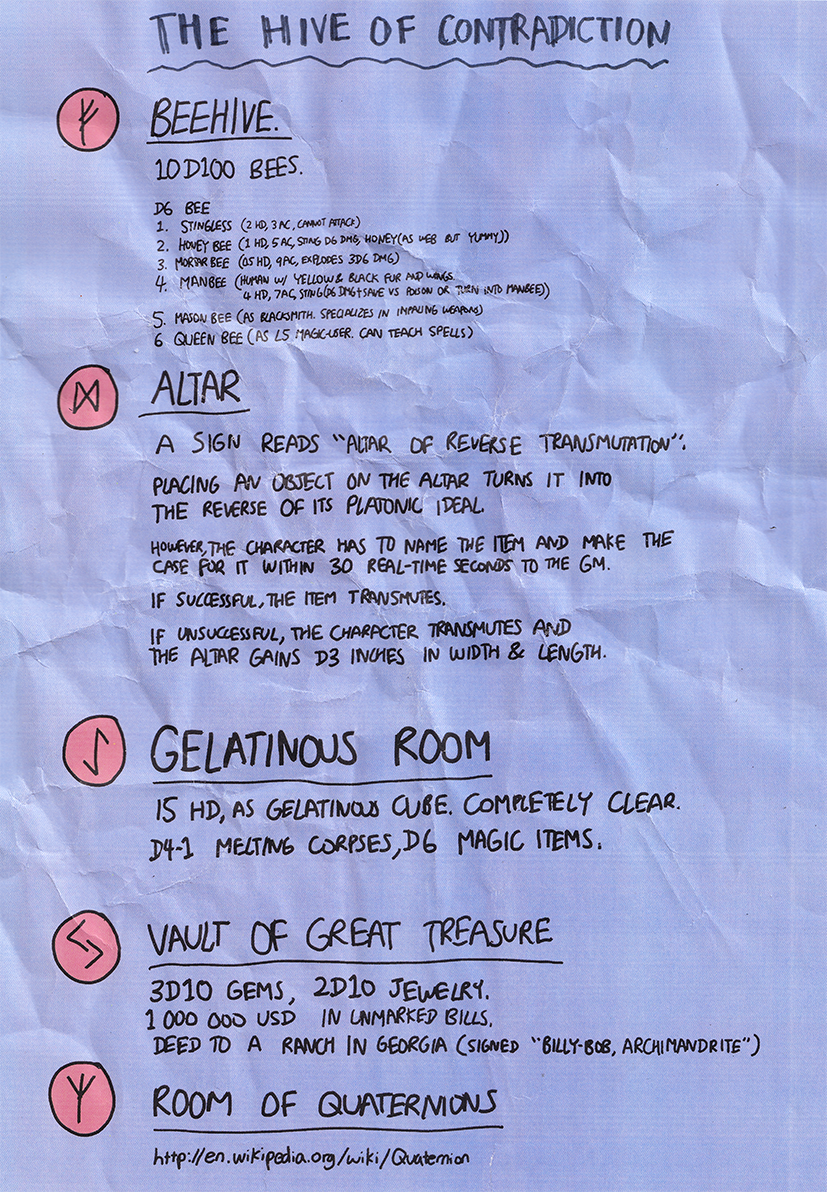 THE HIVE OF CONTRADICTION
ᚠ BEEHIVE.
10D100 BEES.
D6 BEE
1. STINGLESS (2 HD, 3 AC, CANNOT ATTACK)
2. HONEY BEE (1 HD, 5 AC, STING D6 DMG, HONEY (AS WEB BUT YUMMY))
3. MORTAR BEE (0.5 HD, 9AC, EXPLODES 3D6 DMG)
4. MANBEE (HUMAN W/ YELLOW & BLACK FUR AND WINGS.
4 HD, 7AC, STING (D6 DMG + SAVE VS POISON OR TURN INTO MANBEE))
5. MASON BEE (AS BLACKSMITH. SPECIALIZES IN IMPALING WEAPONS)
6 QUEEN BEE (AS L5 MAGIC-USER. CAN TEACH SPELLS)
ᛞ ALTAR
A SIGN READS "ALTAR OF REVERSE TRANSMUTATION".
PLACING AN OBJECT ON THE ALTAR TURNS IT INTO
THE REVERSE OF ITS PLATONIC IDEAL.
HOWEVER, THE CHARACTER HAS TO NAME THE ITEM AND MAKE THE
CASE FOR IT WITHIN 30 REAL-TIME SECONDS TO THE GM.
IF SUCCESSFUL, THE ITEM TRANSMUTES.
IF UNSUCCESSFUL, THE CHARACTER TRANSMUTES AND
THE ALTAR GAINS D3 INCHES IN WIDTH & LENGTH.
ᛇ GELATINOUS ROOM
15 HD, AS GELATINOUS CUBE. COMPLETELY CLEAR.
D4-1 MELTING CORPSES, D6 MAGIC ITEMS.
ᛃ VAULT OF GREAT TREASURE
3D10 GEMS, 2D10 JEWELRY.
1 000 000 USD IN UNMARKED BILLS.
DEED TO A RANCH IN GEORGIA (SIGNED "BILLY-BOB, ARCHIMANDRITE")
ᛉ ROOM OF QUATERNIONS
http://en.wikipedia.org/wiki/Quaternion